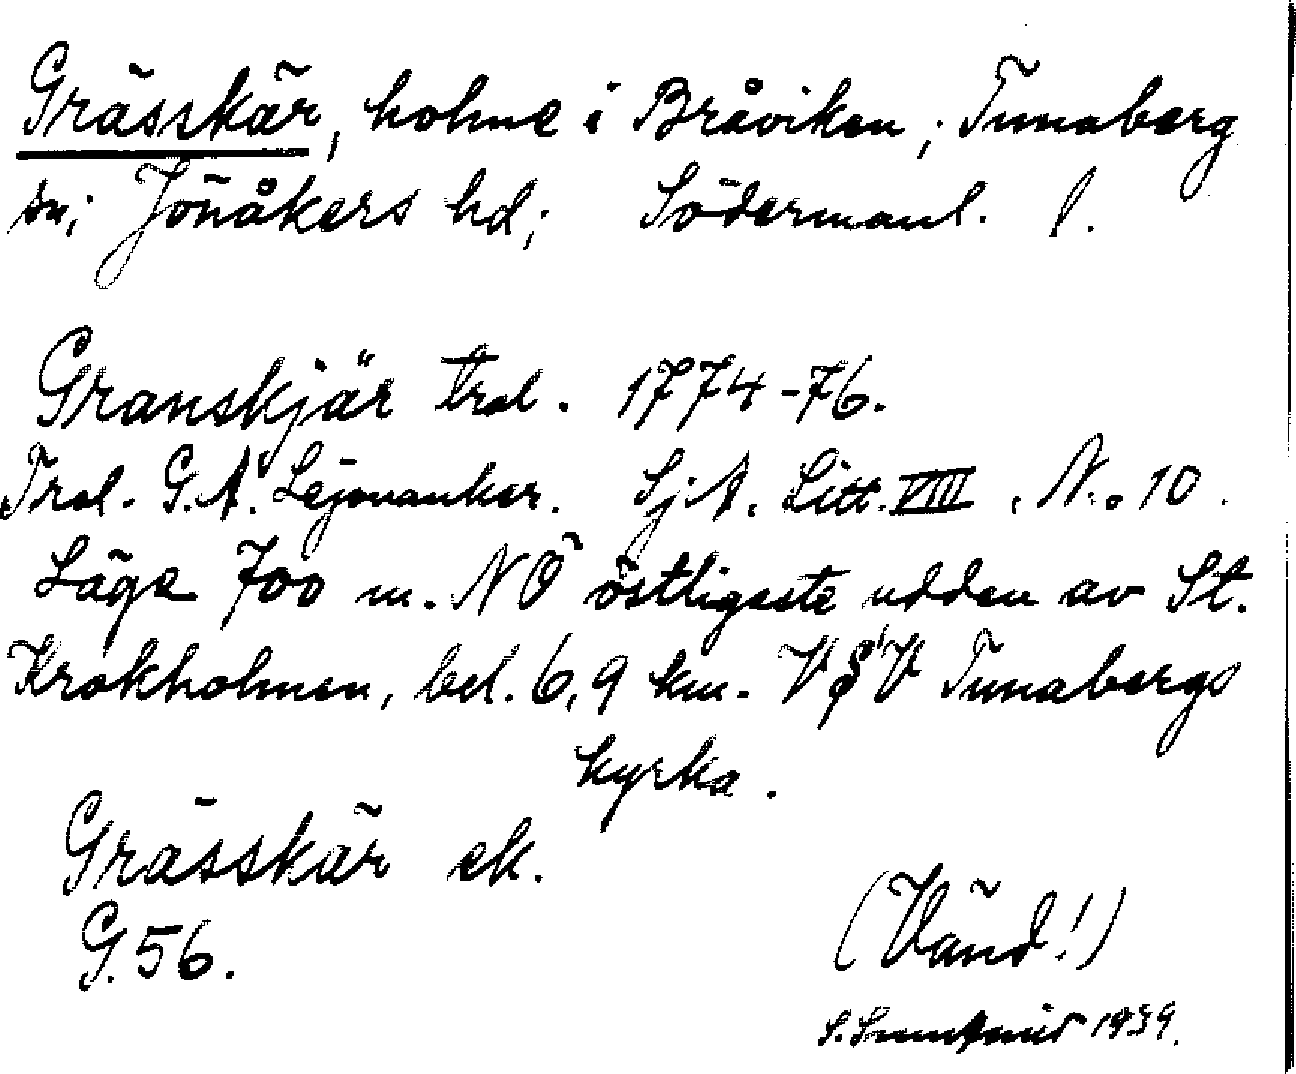 Grässkär, holme i Bråviken; Tunaberg
sn; Jönåkers hd; Södermanl. l.
Granskjär trol. 1774-76.
Trol. G. A. Lejonanker. Sj. A. Litt. VIII. N:o 10.
Läge 700 m. NÖ östligaste udden av St.
Krokholmen, bel. 6,9 km. VSV Tunabergs
kyrka.
Grässkär ek.
G. 56.
(Vänd!)
S. 1939.